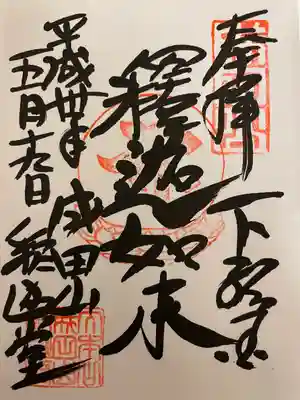 奉拝
下総国
釋迦如来
成田山
釋迦堂
平成卅年
五月十九日